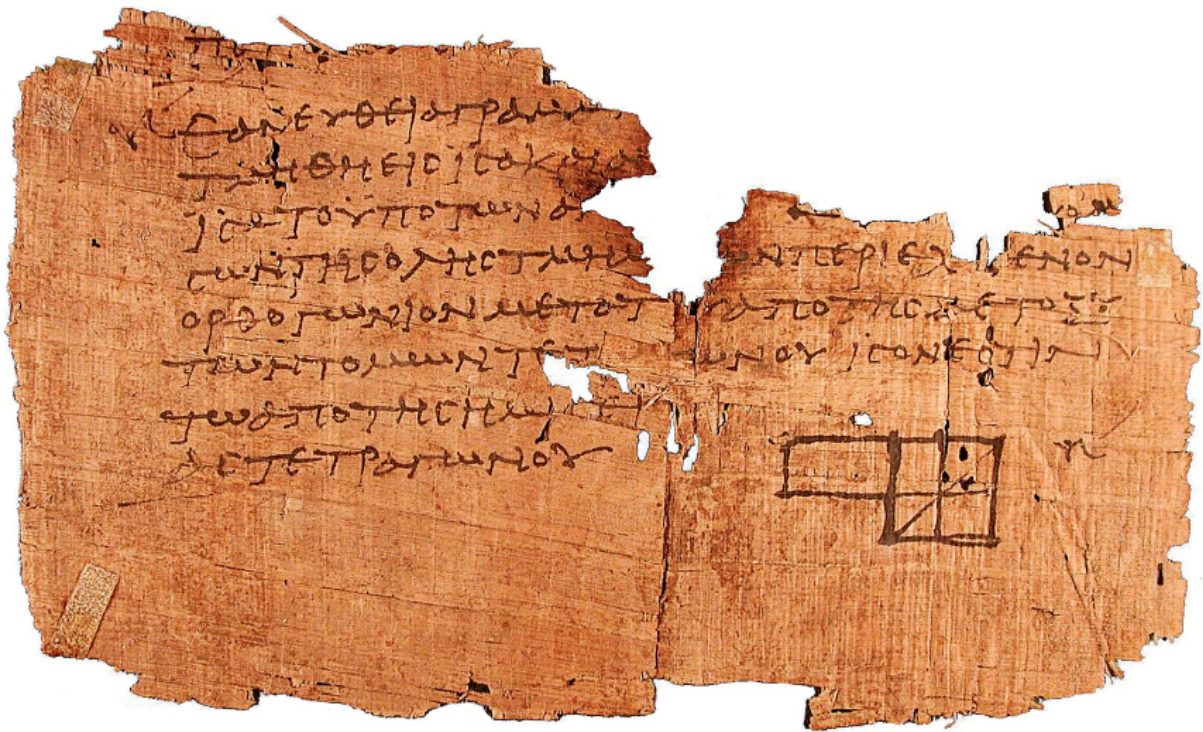 ΕΑΝΕΥΘΕΙΑΓΡΑΜΜ
ΤΜΗΘΗΕΙϹΙϹΑΚΑΙΑ
ΙϹΑΤΟΥΠΟΤΩΝΑ
ϹΩΝΤΗϹΟΛΗϹΤΜΗΜ ΩΝΠΕΡΙΕΧ ΜΕΝΟΝ
ΟΡΘΟΓΩΝΙΟΝΜΕΤΑΤ ΑΠΟΤΗϹΜΕΤΟΞΥ
ΤΩΝΤΟΜΩΝΤΕΤ ΩΝΟΥΙϹΟΝΕϹΤΙΝ
ΤΩΑΠΟΤΗϹΗΜΙϹΕΙ
ΑϹΤΕΤΡΑΓΩΝΟΥ